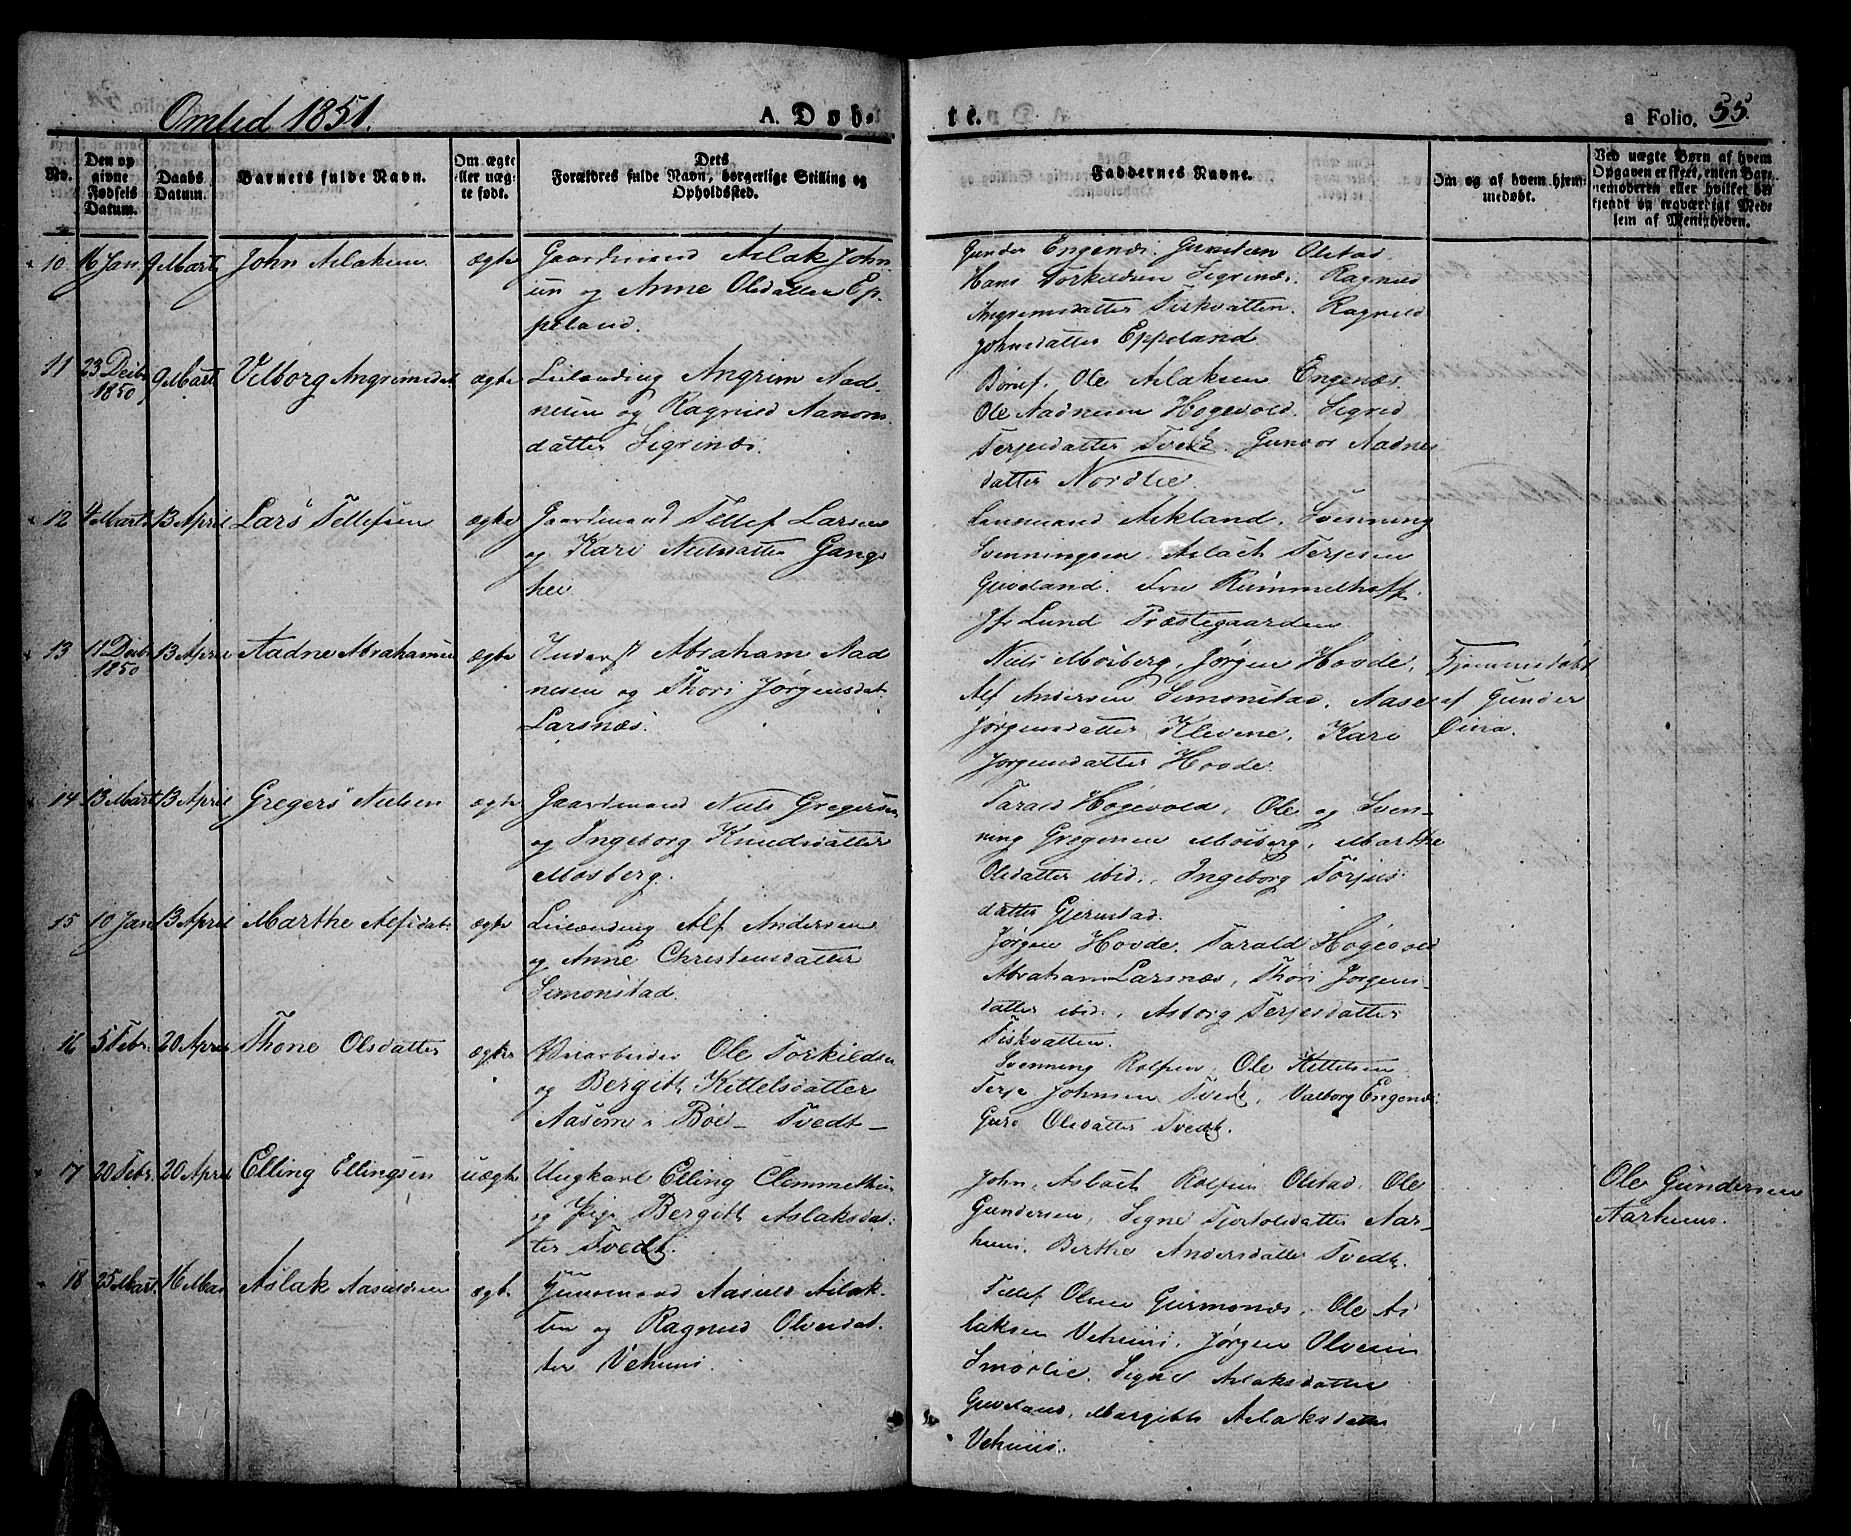 Omlid 1851.
A. Døb-
te.
a Folio. 55.
No.
Den op
givne
Fødsels
Datum.
Daabs
Datum.
Barnets fulde Navn.
Om ægte
eller uæg-
te født.
Dets
Forældres fulde Navn, borgerlige Stilling og
Opholdssted.
Faddernes Navne.
Om og af hvem hjem-
medøbt.
Ved uægte Børn af hvem
Opgaven er skeet, enten Bar-
nemoderen eller hvilket be-
kjendt og troværdigt Med-
lem af Menigheden.
10 16 Jan. 9 Marts John Aslaksen ægte Gaardmand Aslak John-
sen og Anne Olsdatter Ep-
peland.
Gunder Engenæs. Gunsteen Olstad.
Hans Torkildsen Sigrinæs. Ragnild
Angrimsdatter Fiskvatten. Ragnild
Johnsdatter Eppeland
11 23 Decbr 1850 9 Mart Velborg Angrimsdat ægte Leilænding Angrim Aad-
nesen og Ragnild Aanons-
datter Sigrinæs.
Ole Aslaksen Engenæs.
Ole Aadnesen Hogevold. Sigrid
Terjesdatter Tvedt. Gunvor Aadnes
datter Nordlie.
12 4 Marts 13 April Lars Tellefsen ægte Gaardmand Tellef Larsen
og Kari Nielsdatter Gangs-
hei
Lensmand Askland. Svenning
Svenningsen, Aslach Terjesen
Gjiveland. Fru Rummelhoff.
Jfr Lund Præstegaarden
13 11 Decbr 1850 13 April Aadne Abrahamsen ægte Inderst Abraham Aad
nesen og Thori Jørgensdat
Larsnæs.
Niels Mosberg, Jørgen Hovde,
Alf Andersen Simonstad, Aase
Jørgensdatter Klevene, Kari
Jørgensdatter Hovde.
Hjemmedøbt
af Gunder
14 13 Mart 13 April Gregers Nielsen ægte Gaardmand Niels Gregersen
og Ingeborg Knudsdatter
Mosberg.
Tarald Hogevold, Ole og Sven-
ning Gregersen Mosberg, Marthe
Olsdatter ibid., Ingeborg Torjus-
datter Gjerustad.
15 10 Jan 13 April Marthe Alfsdat ægte Leilænding Alf Andersen
og Anne Christensdatter
Simonstad.
Jørgen Hovde. Tarald Hogevold
Abraham Larsnæs, Thori Jørgens-
datter ibid., Asborg Terjesdatter
Fiskvatten.
16 5 Febr. 20 April Thone Olsdatter ægte Veiarbeider Ole Torkildsen
og Bergith Kittelsdatter
Aasem i Bøe – Tvedt –
Svenning Rolfsen, Ole Kittelsen
Terje Johnsen Tvedt, Valborg Engenæs
Guro Olsdatter Tvedt.
17 20 Febr. 20 April Elling Ellingsen uægte Ungkarl Elling Clemmetsen
og Pige Bergith Aslaksdat-
ter Tvedt.
John, Aslach Rolfsen Olstad, Ole
Gundersen, Signe Tjostolsdatter Aar-
huus. Berthe Andersdatter Tvedt.
Ole Gundersen
Aarhuus.
18 25 Mart. 16 Mai Aslak Aasuldsen ægte Huusmand Aasuld Aslak-
sen og Ragnild Olvesdat-
ter Vehuus.
Tellef Olsen Gurmonæs, Ole As
laksen Vehuus, Jørgen Olvesen
Smørlie. Signe Aslaksdatter
Giveland, Margith Aslaksdatter
Vehuus.